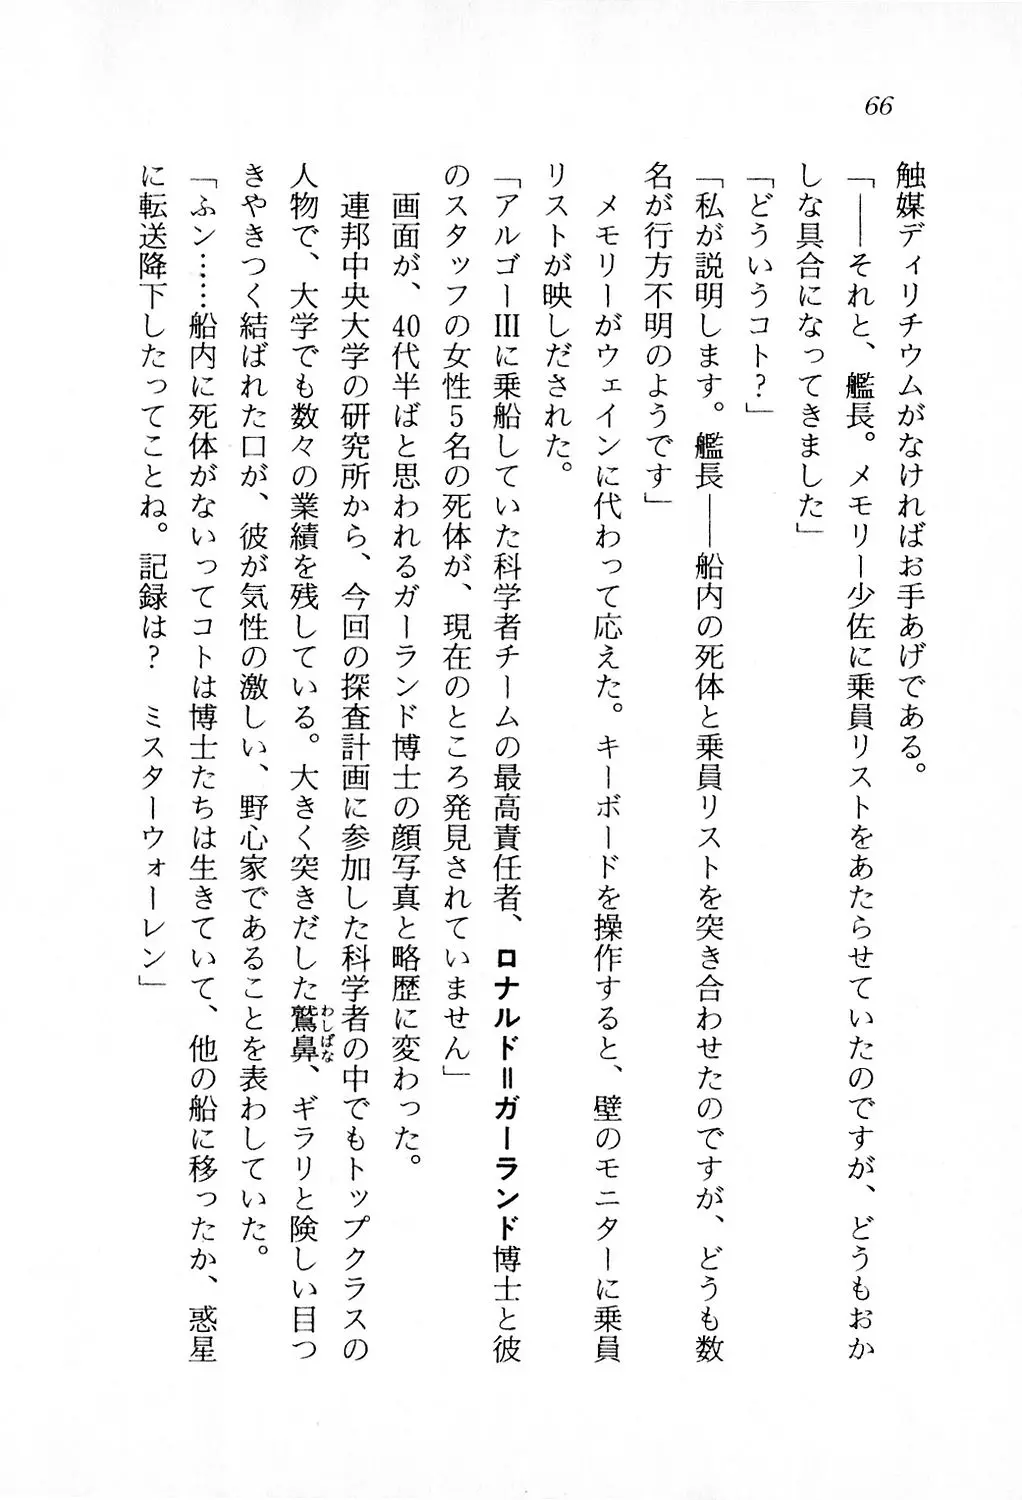 66
触媒ディリチウムがなければお手あげである。
「――それと、艦長。メモリー少佐に乗員リストをあたらせていたのですが、どうもおか
しな具合になってきました」
「どういうコト?」
「私が説明します。艦長――船内の死体と乗員リストを突き合わせたのですが、どうも数
名が行方不明のようです」
メモリーがウェインに代わって応えた。キーボードを操作すると、壁のモニターに乗員
リストが映しだされた。
「アルゴーⅢに乗船していた科学者チームの最高責任者、ロナルド=ガーランド博士と彼
のスタッフの女性5名の死体が、現在のところ発見されていません」
画面が、40代半ばと思われるガーランド博士の顔写真と略歴に変わった。
連邦中央大学の研究所から、今回の探査計画に参加した科学者の中でもトップクラスの
人物で、大学でも数々の業績を残している。大きく突きだした鷲鼻、ギラリと険しい目つ
わしばな
きやきつく結ばれた口が、彼が気性の激しい、野心家であることを表わしていた。
「ふン……船内に死体がないってコトは博士たちは生きていて、他の船に移ったか、惑星
に転送降下したってことね。記録は? ミスターウォーレン」